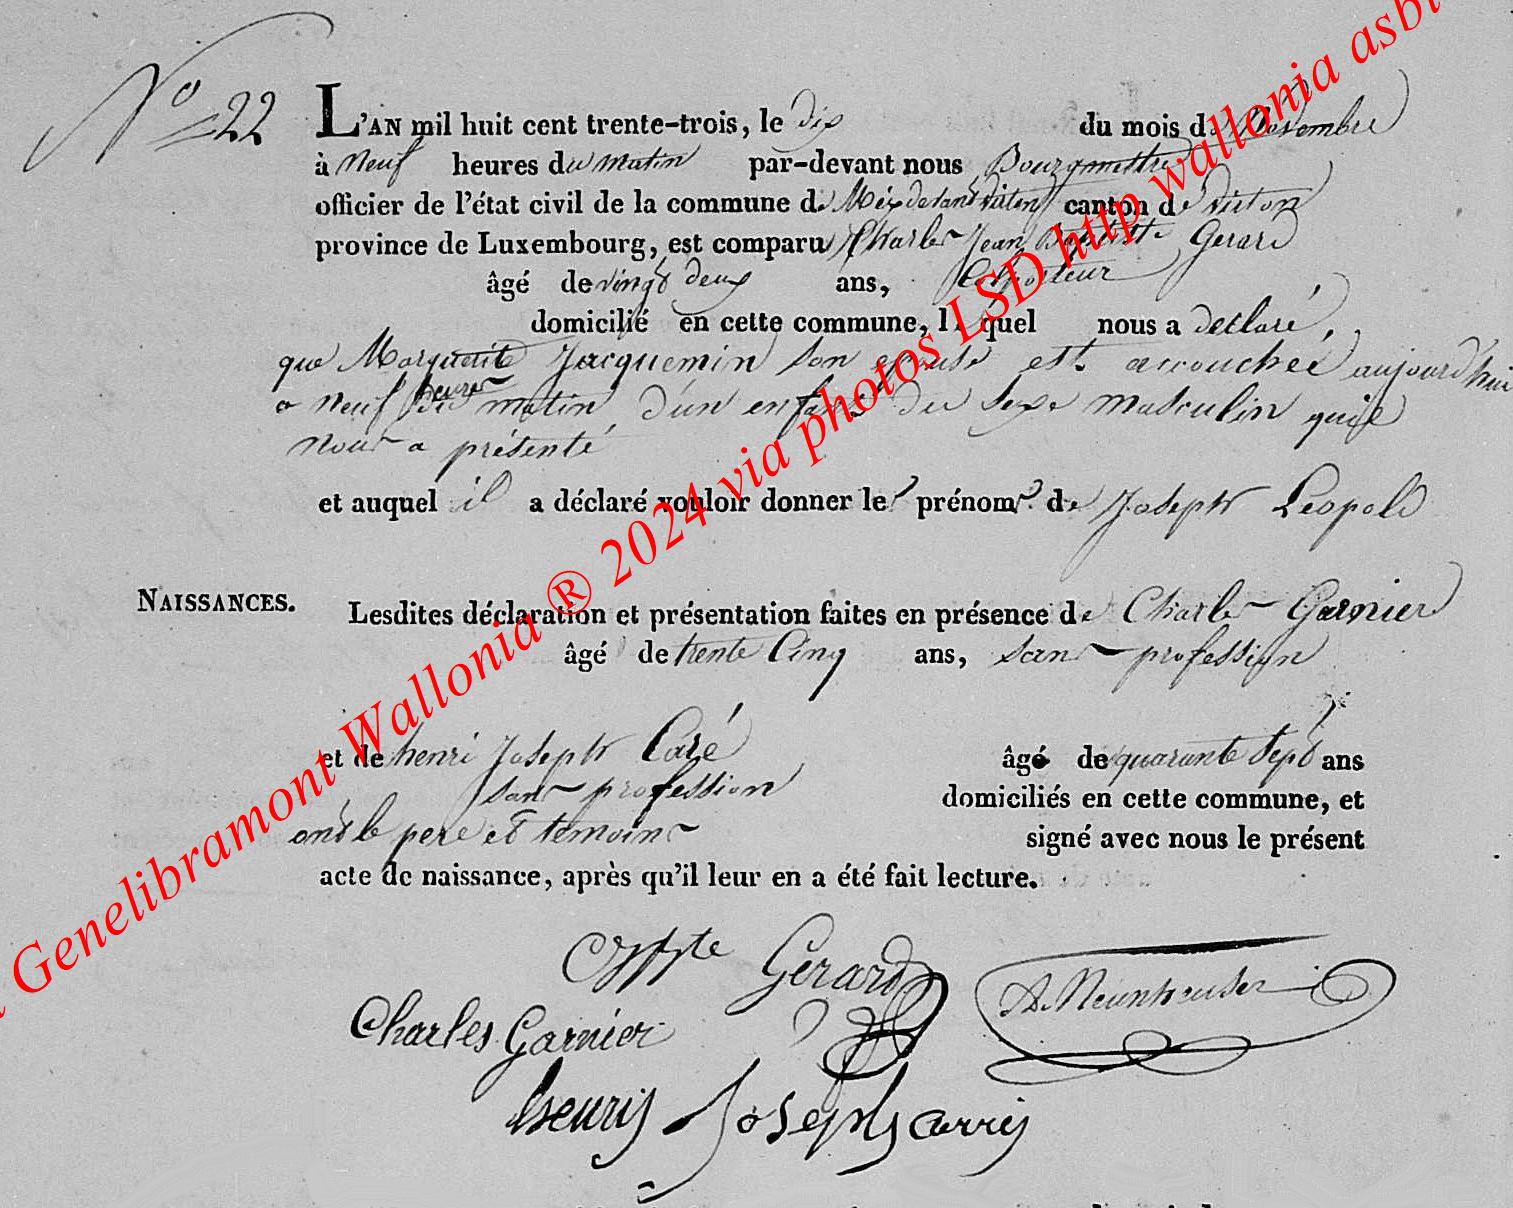 N° 22
L'AN mil huit cent trente-trois, le dix du mois de
à neuf heures du matin par-devant nous Bourgmettre
officier de l'état civil de la commune de Meix devant virton canton de virton
province de Luxembourg, est comparu Charles Jean Baptiste Gerard
âgé de vingt deux ans, Colporteur
domicilié en cette commune, lequel nous a déclaré,
que Marguerite Jacquemin son epouse est accouchée aujourd'hui
a neuf heures du matin d'un enfant du sexe masculin qu'il
nous a présenté
et auquel il a déclaré vouloir donner les prénoms de Joseph Leopold
NAISSANCES.
Lesdites déclaration et présentation faites en présence de Charles Garnier
âgé de trente Cinq ans, sans profession
et de henri Joseph Caré âgé de quarante sept ans
sans profession domiciliés en cette commune, et
ont le pere et temoins signé avec nous le présent
acte de naissance, après qu'il leur en a été fait lecture.
Gerard
Charles Garnier
A. Neunheuser
henry Joseph carrey
Genelibramont Wallonia ® 2024 via photos LSD http wallonia asbl